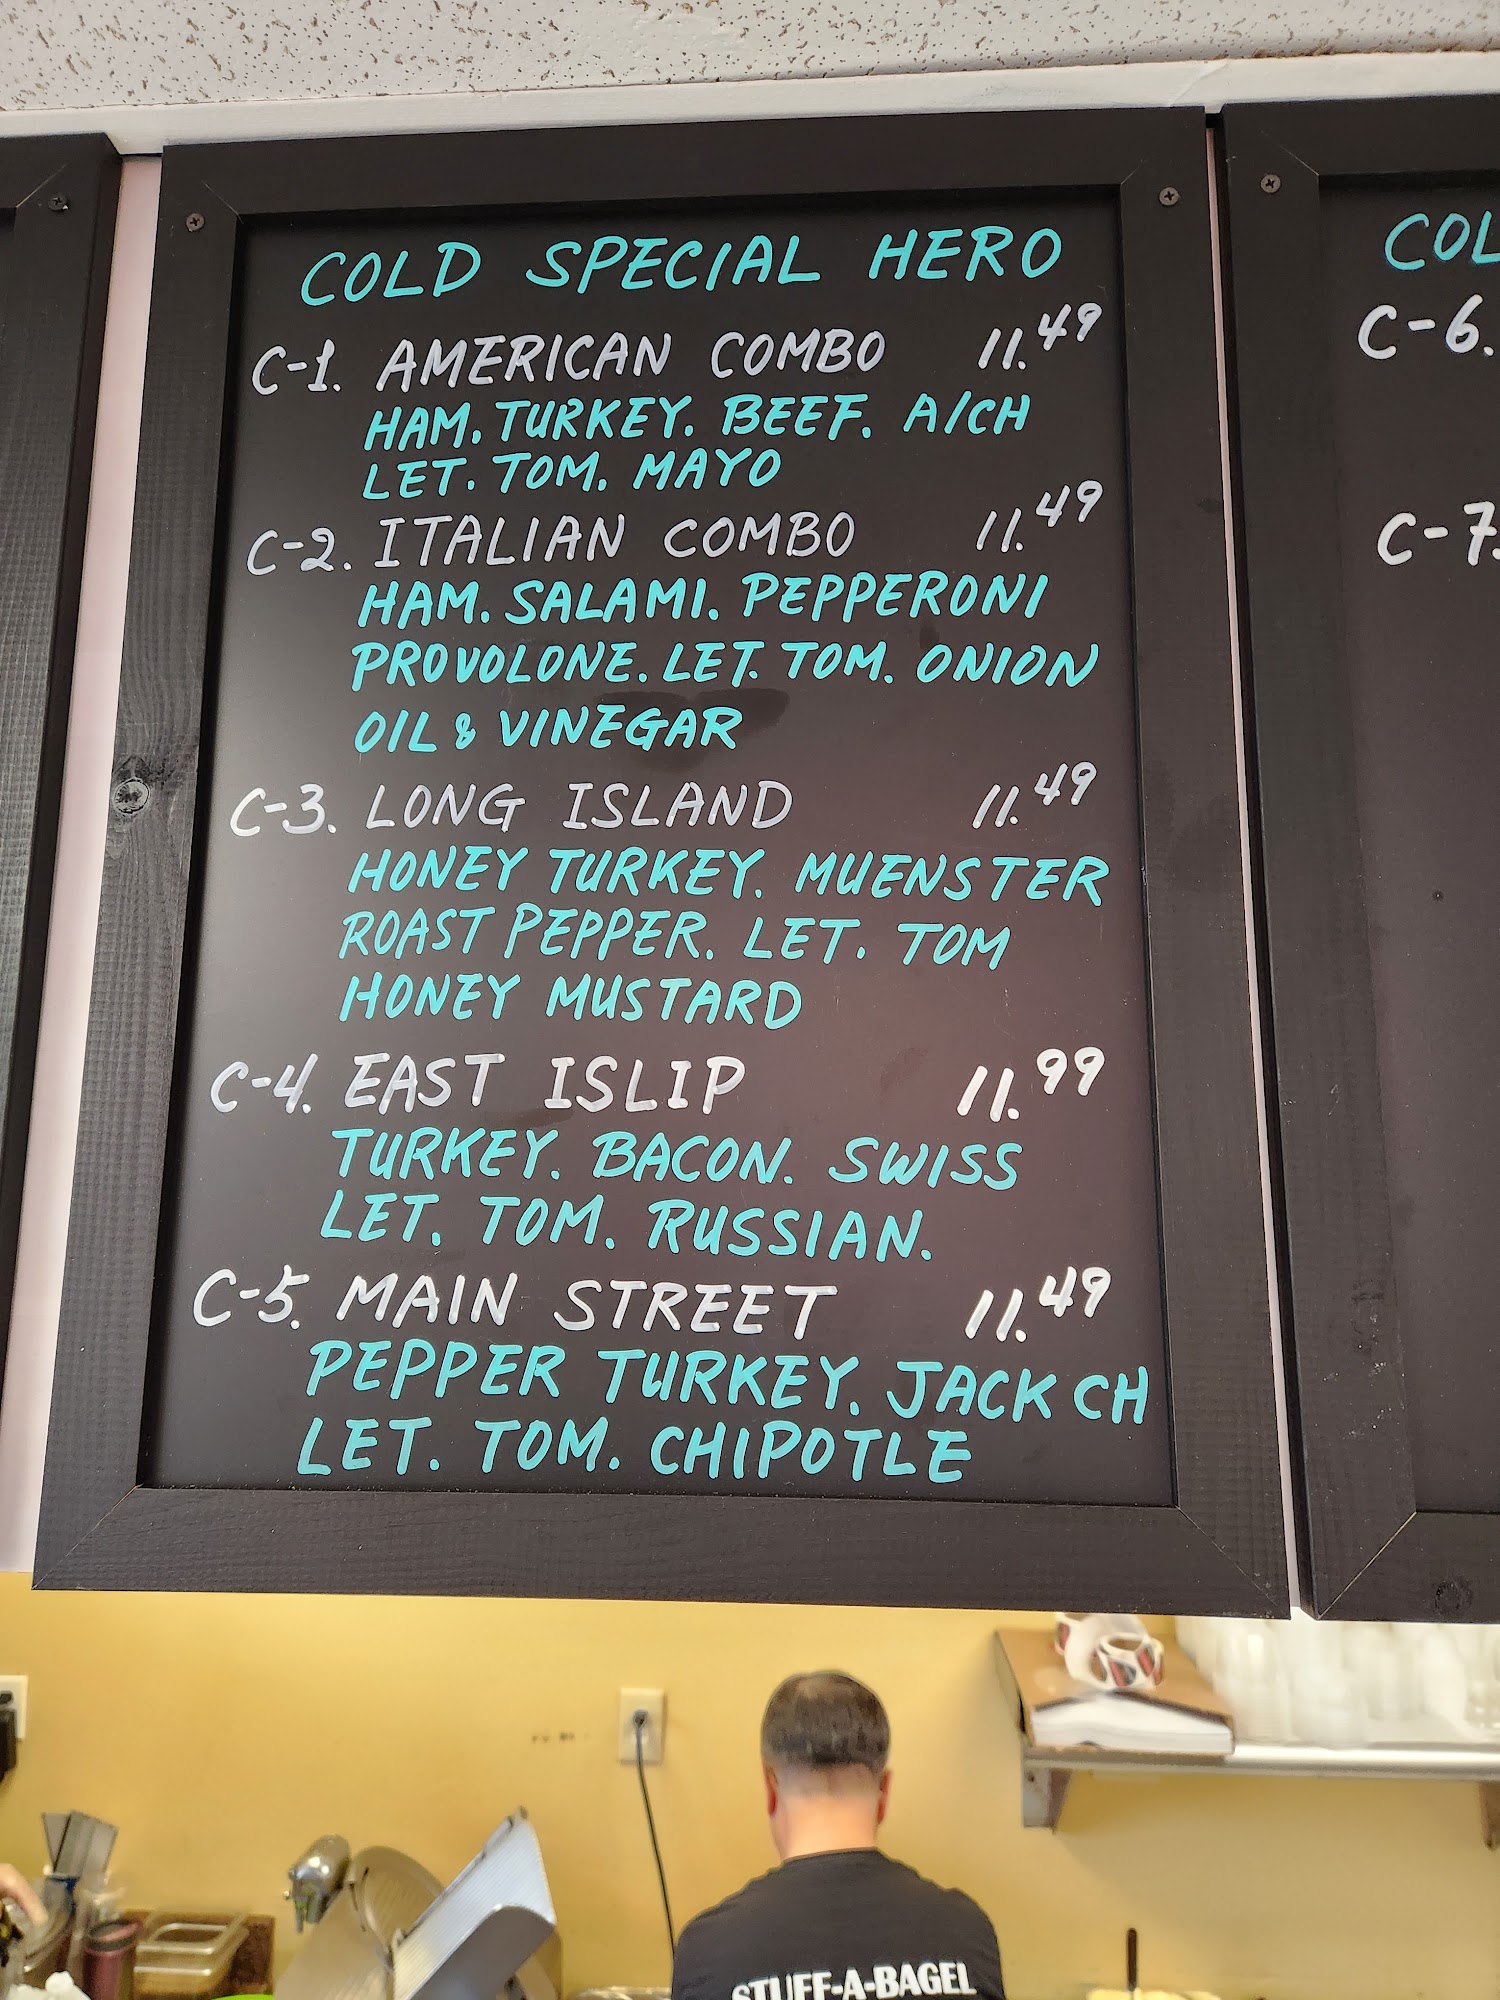 COLD SPECIAL HERO
C-1. AMERICAN COMBO 11.49
HAM. TURKEY. BEEF. A/CH
LET. TOM. MAYO
C-2. ITALIAN COMBO 11.49
HAM. SALAMI. PEPPERONI
PROVOLONE. LET. TOM. ONION
OIL & VINEGAR
C-3. LONG ISLAND 11.49
HONEY TURKEY. MUENSTER
ROAST PEPPER. LET. TOM
HONEY MUSTARD
C-4. EAST ISLIP 11.99
TURKEY. BACON. SWISS
LET. TOM. RUSSIAN.
C-5. MAIN STREET 11.49
PEPPER TURKEY. JACK CH
LET. TOM. CHIPOTLE
COL
C-6.
C-7.
STUFF-A-BAGEL